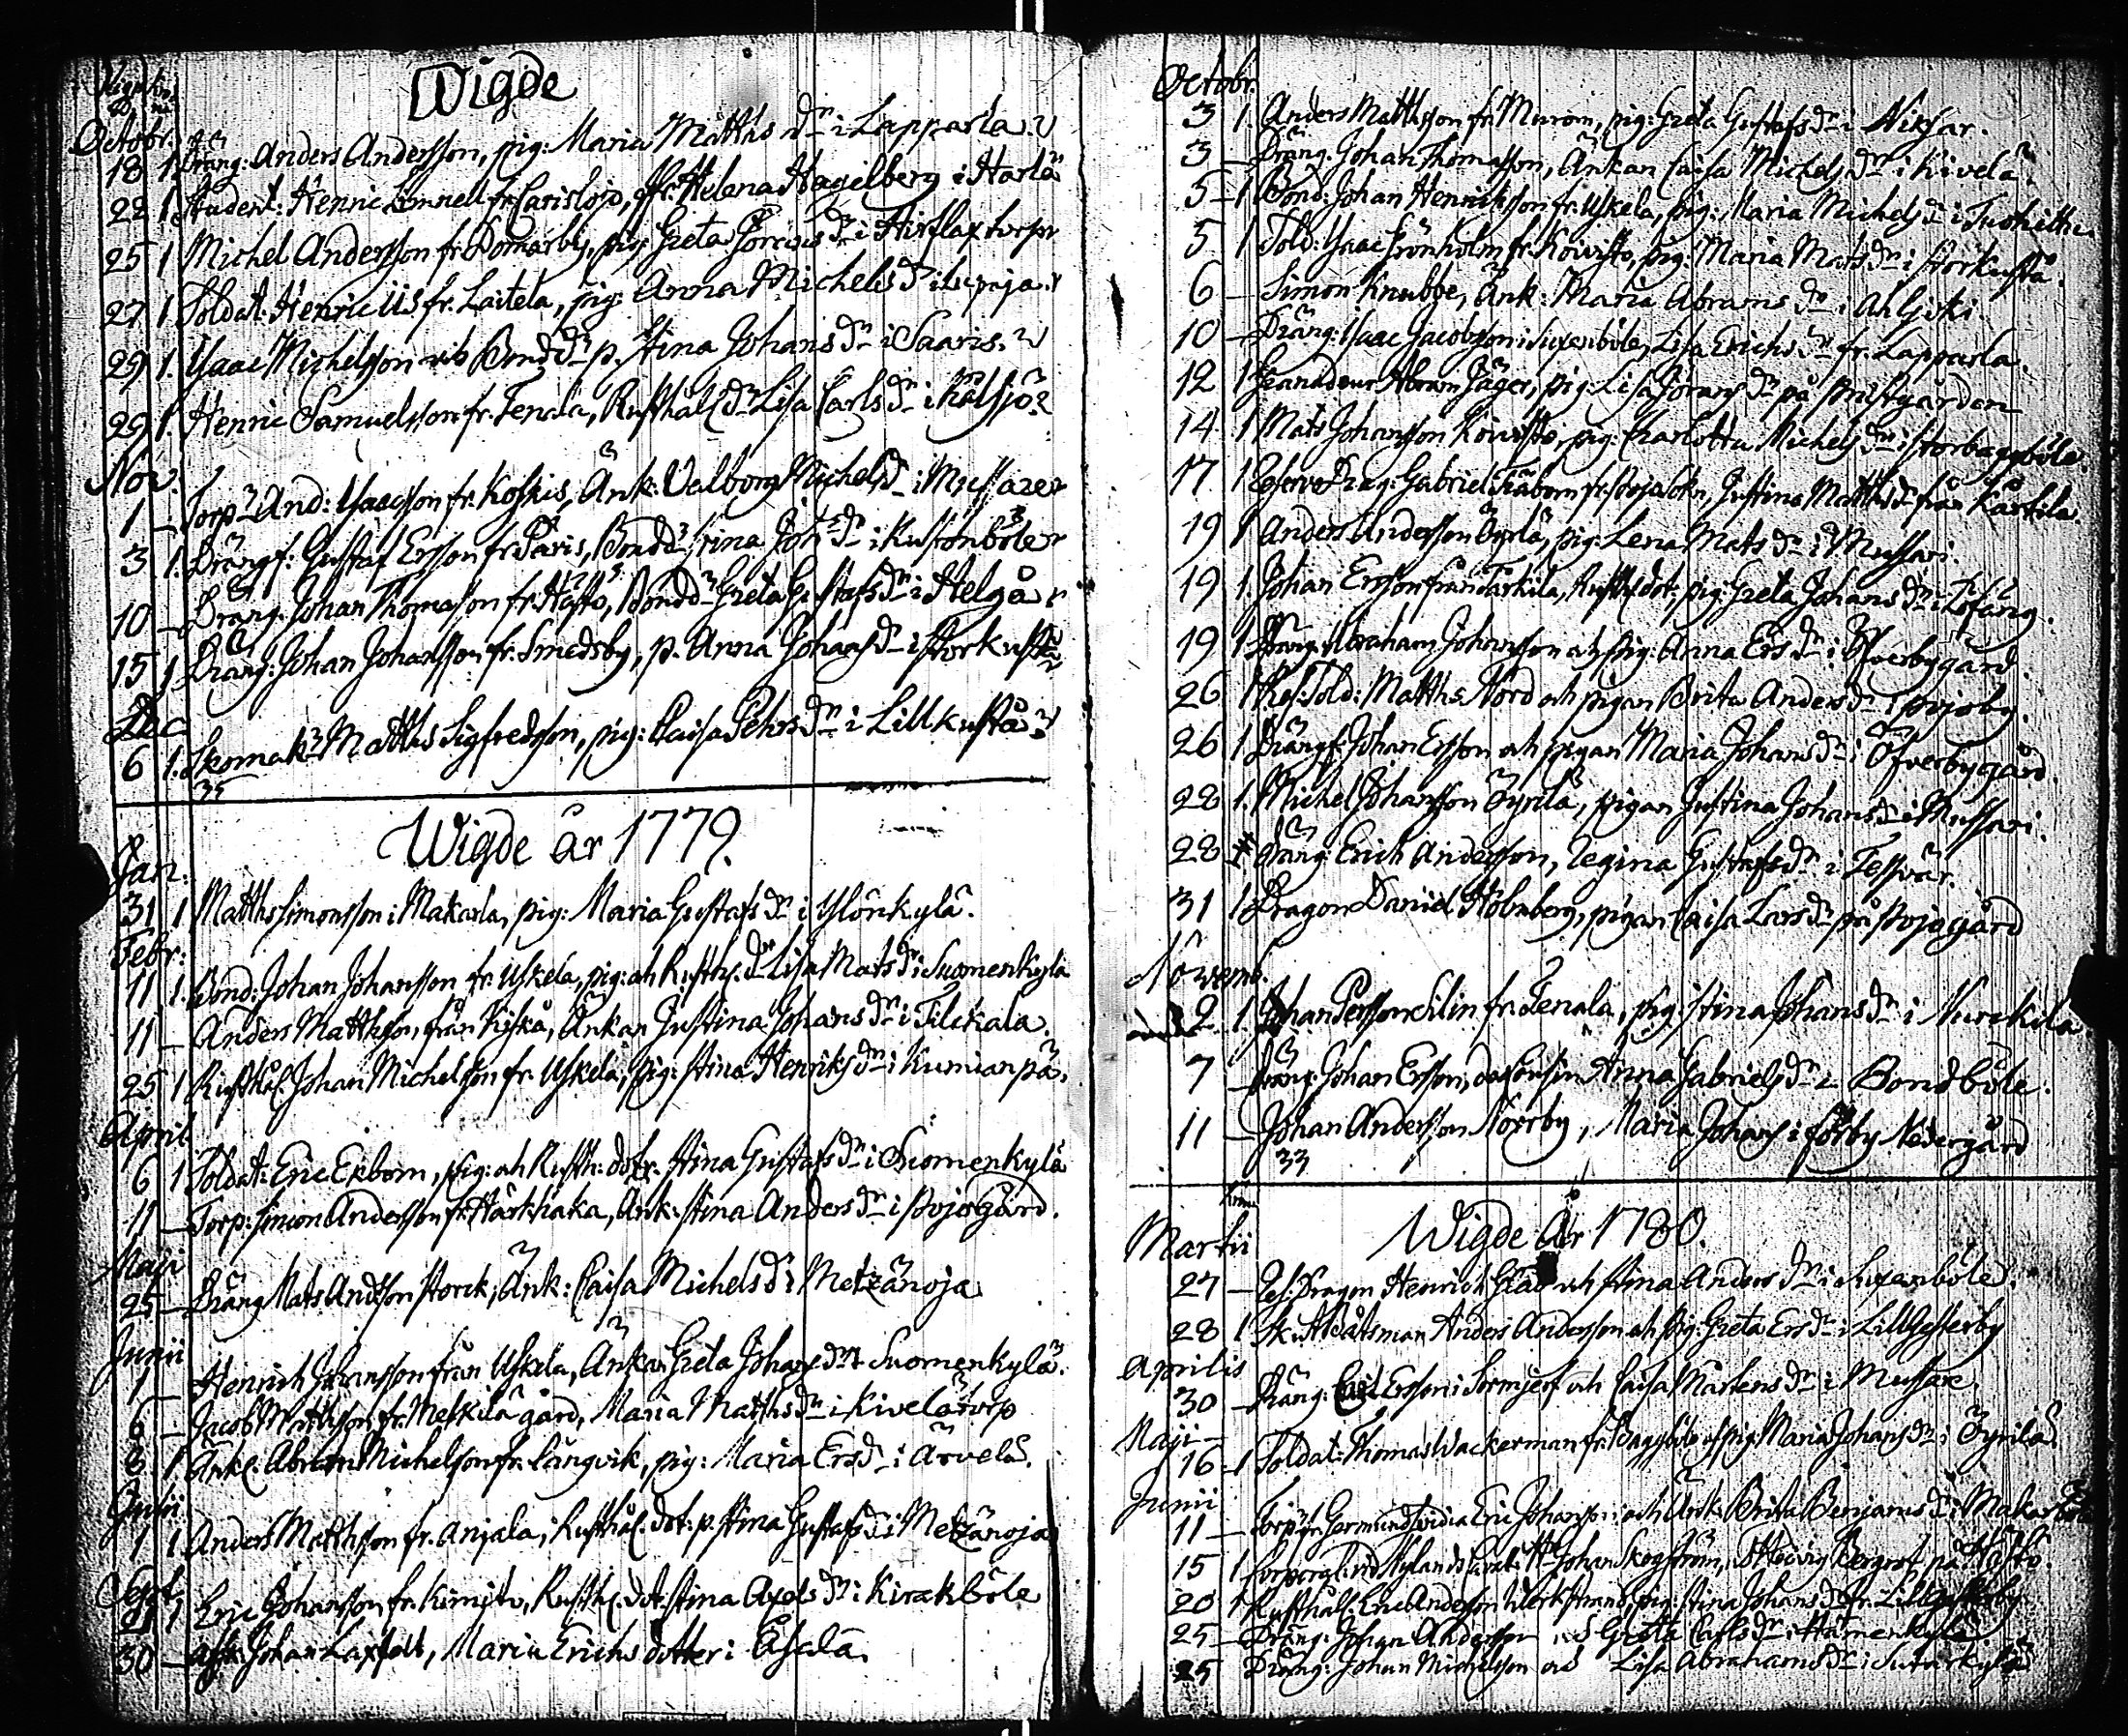 Wigde
Octobr.
18 1 Dräng: Anders Andersson, pig: Maria Matths dr i Lapparla.
22 1 Student: Henric Lönnell fr. Carislojo, Helena Hagelberg i Harlä
25 1 Michel Andersson fr. Domarby, pig Greta Görans dr i
27 1 Soldat: Henric Uis fr. Laitela, pig: Anna Michels dr i
29 1. Isaac Michelsson Bond dr p. Stina Johans dr i Saaris.
29 1. Henric Samuelsson fr. Tenala, Rusthåls dr Lisa Carls dr i Kålsjö
Nov.
1 – Torp. And: Isaacsson fr. Koskis, Änk: Valborg Michels dr i Mussare
3 1. Drängf: Gustaf Ersson fr. Påris, Bond dr Stina Joh dr i Kustönböle
10 – Dräng: Johan Thomasson fr. Hästö, Bond dr Greta Gustafs dr i Helgå
15 1 Dräng: Johan Johansson fr. Smedsby, p. Anna Johans dr i Storkustä
Dec
6 1. Skomak. Matths Sigfredsson, pig: Caisa Pehrs dr i Lillkustå
35
Wigde år 1779.
Jan:
31 1 Matths Simonsson i Makarla, pig: Maria Gustafs dr i Ylönkylä.
Febr:
11 1. Bond: Johan Johansson fr. Uskela, pig: och Rusth. dr Lisa Mats dr i Suomenkylä
11 – Anders Mattsson, från Kiskå, Änkan Justina Johans dr i Tilckala.
25 1 Rusthål. Johan Michelsson fr. Uskela, pig: Stina Henriks dr i Kumianpä.
April
6 1 Soldat: Eric Ekbom, pig: och Rusth: dotr. Stina Gustafs dr i Suomenkylä
11 – Torp: Simon Andersson fr. Härkhaka, Änk: Stina Anders dr i Pojogård.
Maji
25 – Dräng Mats Andsson Storck, Änk: Caisa Michels dr i Metzänoja
Junii
1 – Henrich Johansson från Uskela, Änkan Greta Johans dr i Suomenkylä.
6 – Jacob Mattsson fr. Melkilä gård, Maria Matths dr i Kivelä torp
8 1 Änkl. Abram Michelsson fr. Långvik, pig: Maria Ers dr i Ärvelä.
Julii
1 1 Anders Matthsson fr. Anjala, Rusthål. dot: p. Stina Gustafs dr i Metzänoja
Sept.
21 1 Eric Johansson fr. Kimito, Rusthl. dot. Stina Axels dr i Kirakböle
30 – Johan Laxfelt, Maria Erichs dotter i

Octobr.
3 1. Anders Matthsson fr. Murom, pig: Greta Gustafs dr i Niksar.
3 – Dräng. Johan Thomasson, Änkan Caisa Michels dr i Kivelä.
5 – 1 Bond: Johan Henriksson fr. Uskela, pig: Maria Michels dr i
5 1 Sold: Isaac Grönholm fr. Koivisto, pig: Maria Mats dr i Storkustå.
6 – Simon Knubbe, Änk: Maria Abrams dr i
10 – Dräng: Isaac Jacobsson i Suxenböle, Lisa Erichs dr fr. Lapparla.
12 1 Granadeur Abram Jäger, pig: Lisa Görans dr på Prestgården
14 1 Mats Johansson Koivisto, pig: Charlotta Michels dr i Storbaggböle.
17 1 Reserve Drag: Gabriel Träbom fr. Pojo Sokn, Justina Matths dr från Kårkila.
19 1 Anders Andersson Öyrlä, pig: Lena Mats dr i Mussari.
19 1. Johan Ersson från Tarkila, Rusth. dot: pig: Greta Johans dr i Löfäng.
19 1 Dräng Abraham Johansson och pig: Anna Ers dr i Öfverbygård.
26 1 Res: Sold: Matths Nord och pigan Brita Anders dr i Pojoby.
26 1 Drängf: Johan Ersson och pigan Maria Johans dr i Öfverbygård.
28 1. Michel Johansson Öyrilä, pigan Justina Johans dr i Mussari.
28 Dräng Erich Andersson, Regina Gustafs dr i Tessvär.
31 1 Dragon Daniel Holmberg, pigan Caisa Lars dr på Pojogård
Novemb.
2. 1. Johan Persson Silin fr. Tenala, pig Stina Johans dr i
7 – Dräng. Johan Ersson, Anna Gabriels dr i Bondböle.
11 – Johan Andersson Norrby, Maria Johans i Förby Nedergård
33
Wigde År 1780.
Martii
27 – Res: Dragon Henrich Glad och Stina Anders dr i Suxenböle.
28 1 Båtsman Anders Andersson och pig: Greta Ers dr i Lillgesterby
Aprilis
30 – Dräng: Ersson i Sormjerf och Caisa Mårtens dr i Mussare.
Maji –
16 1 Soldat: Thomas Wackerman fr. Baggböle pig Maria Johans dr i Öyrilä.
Junii
11 – Torp fr. Germundsvidia Eric Johansson och Änk: Brita Benjams dr i Makarböle
15 1 Corporal: vid Nylands Johan Skogström, Hedvig Bergrot på Hästö.
20 1 Rusthåll: Eric Andersson, pig: Stina Johans dr fr. Lillgesterby
25 – Dräng: Johan Andersson Greta Carls dr i Hämenkylä
25 Dräng: Johan Michelsson och Lisa Abrahams dr i Sutarkylä